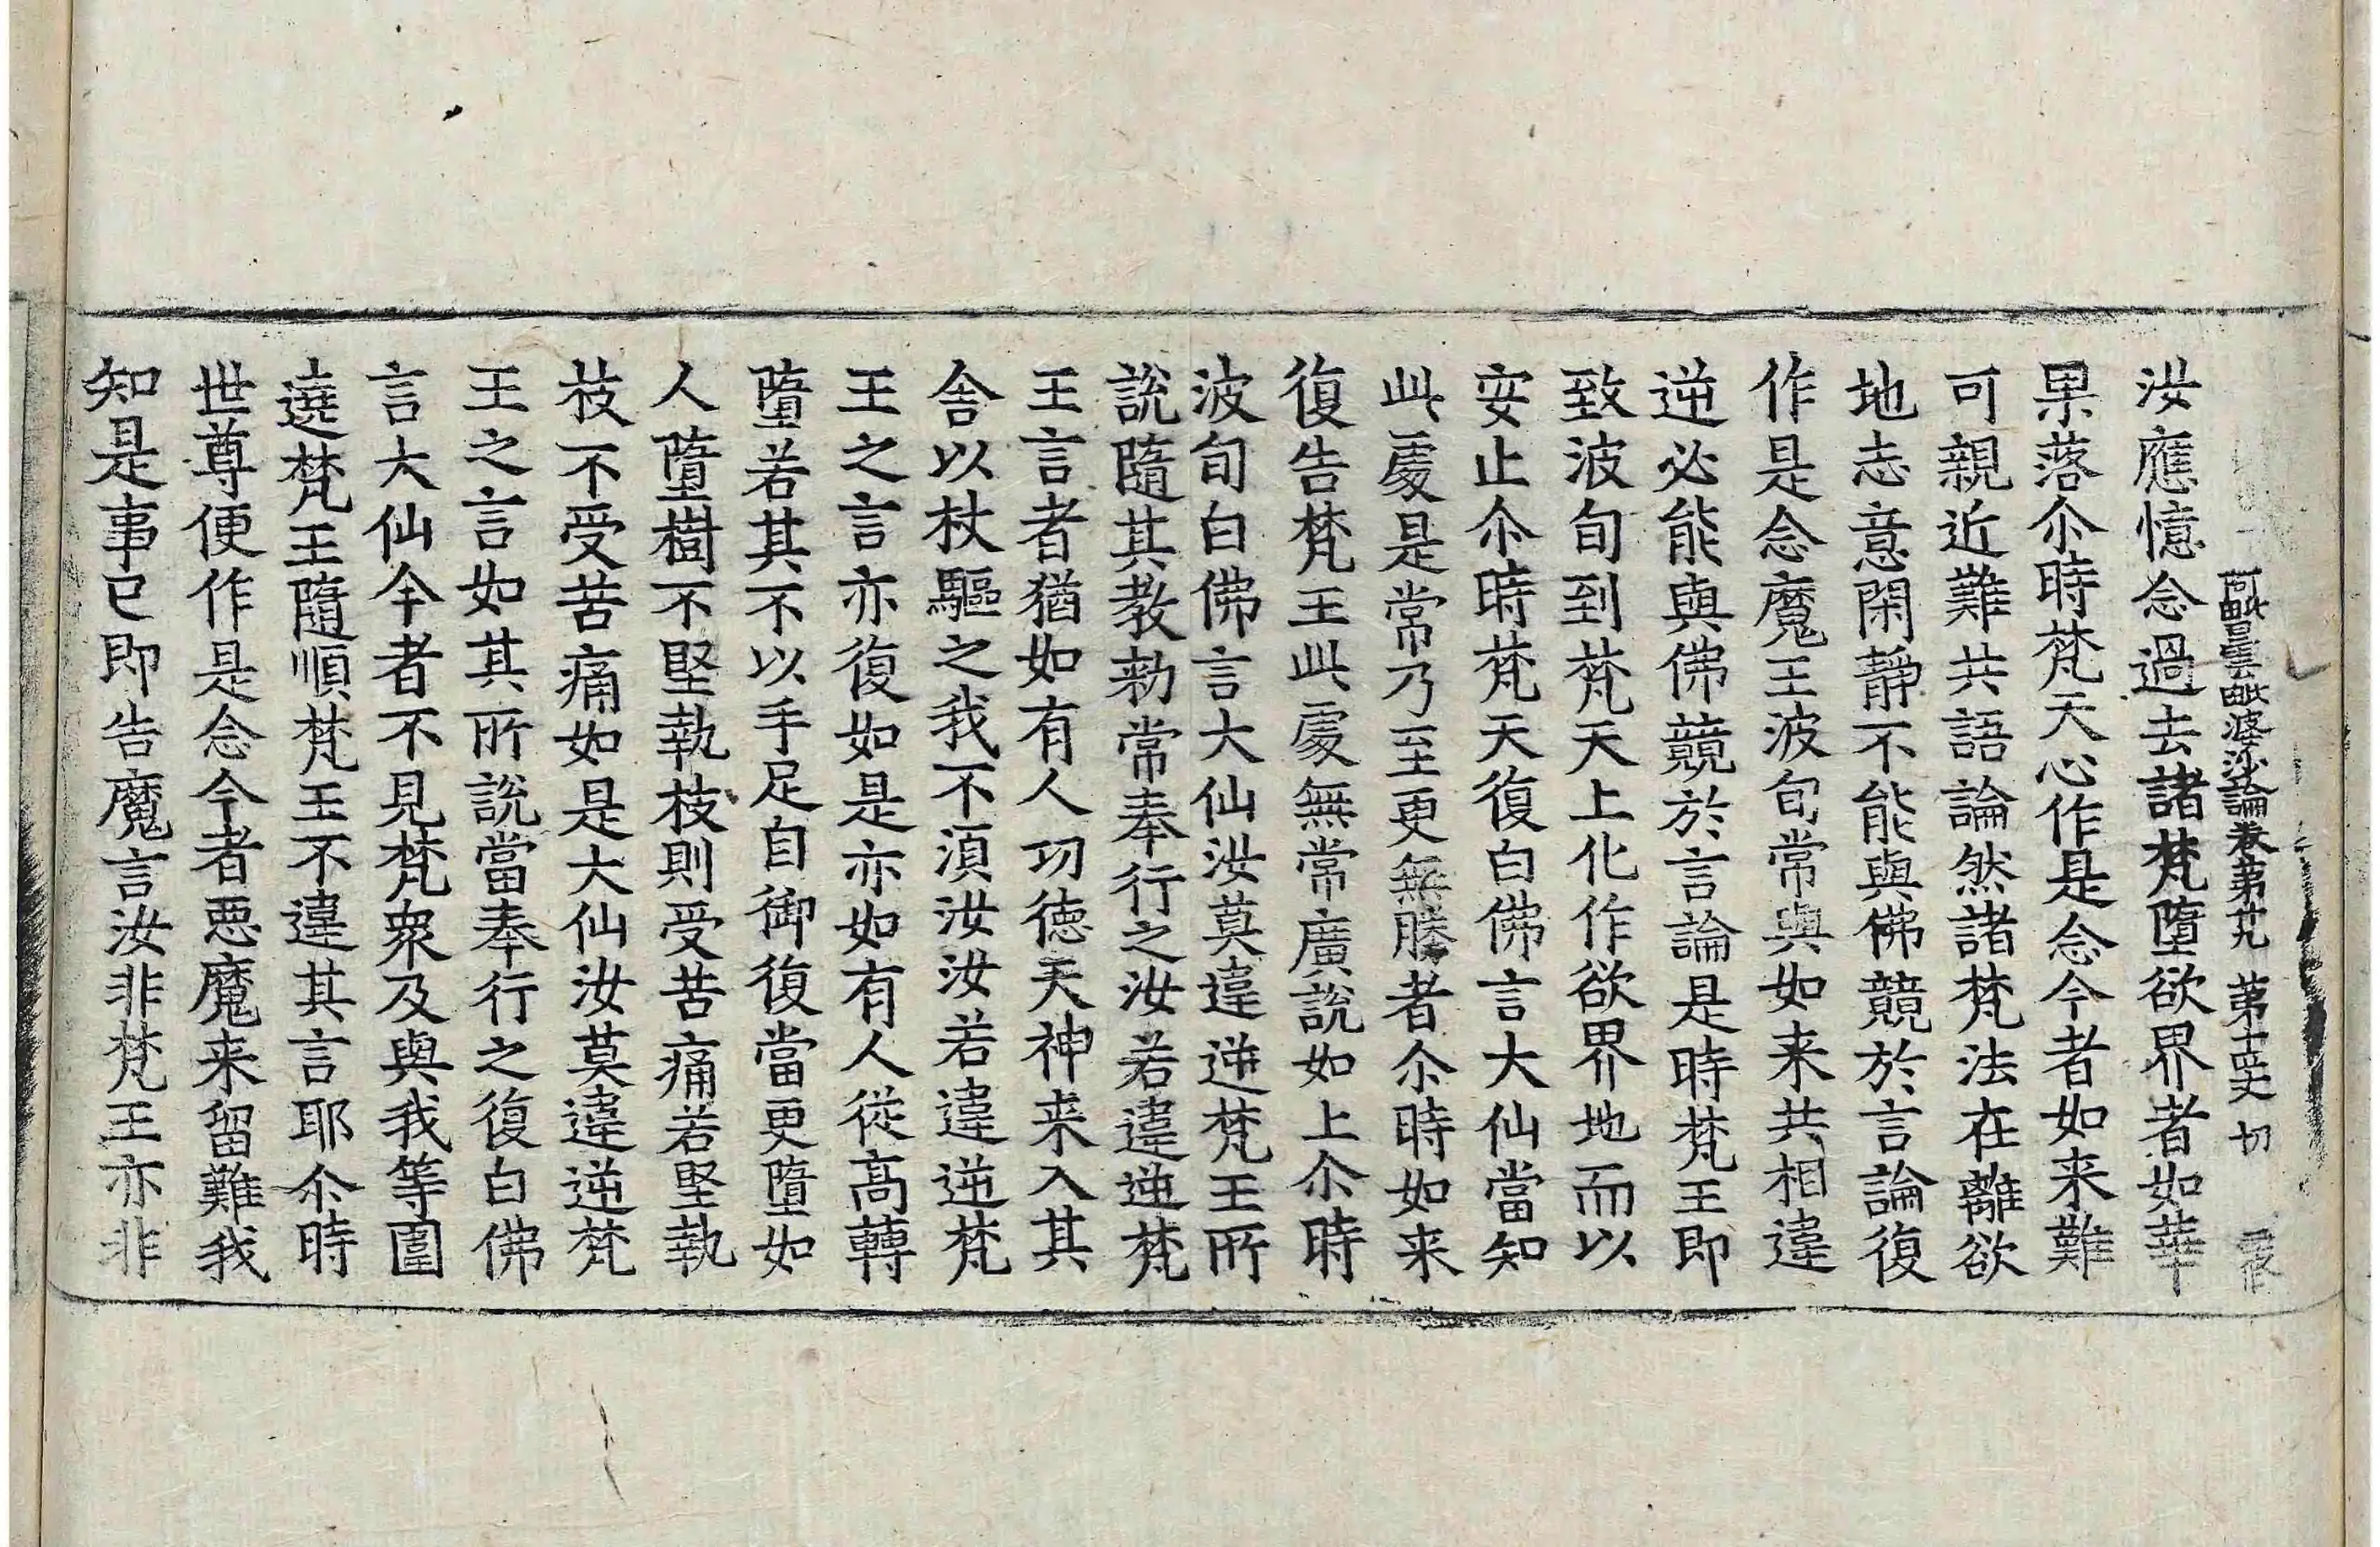 阿毗曇毗婆沙論卷第廿九 第十四丈 切
汝應憶念過去諸梵墮欲界者如華
果落尒時梵天心作是念今者如来難
可親近難共語論然諸梵法在離欲
地志意閑靜不能與佛競於言論復
作是念魔王波旬常與如来共相違
逆必能與佛競於言論是時梵王即
致波旬到梵天上化作欲界地而以
安止尒時梵天復白佛言大仙當知
此處是常乃至更無勝者尒時如来
復告梵王此處無常廣說如上尒時
波旬白佛言大仙汝莫違逆梵王所
說隨其教勑常奉行之汝若違逆梵
王言者猶如有人功德天神来入其
舍以杖驅之我不湏汝汝若違逆梵
王之言亦復如是亦如有人從高轉
墮若其不以手足自御復當更墮如
人墮樹不堅執枝則受苦痛若堅執
枝不受苦痛如是大仙汝莫違逆梵
王之言如其所說當奉行之復白佛
言大仙今者不見梵衆及與我等圍
遶梵王隨順梵王不違其言耶尒時
世尊便作是念今者惡魔来留難我
知是事已即告魔言汝非梵王亦非